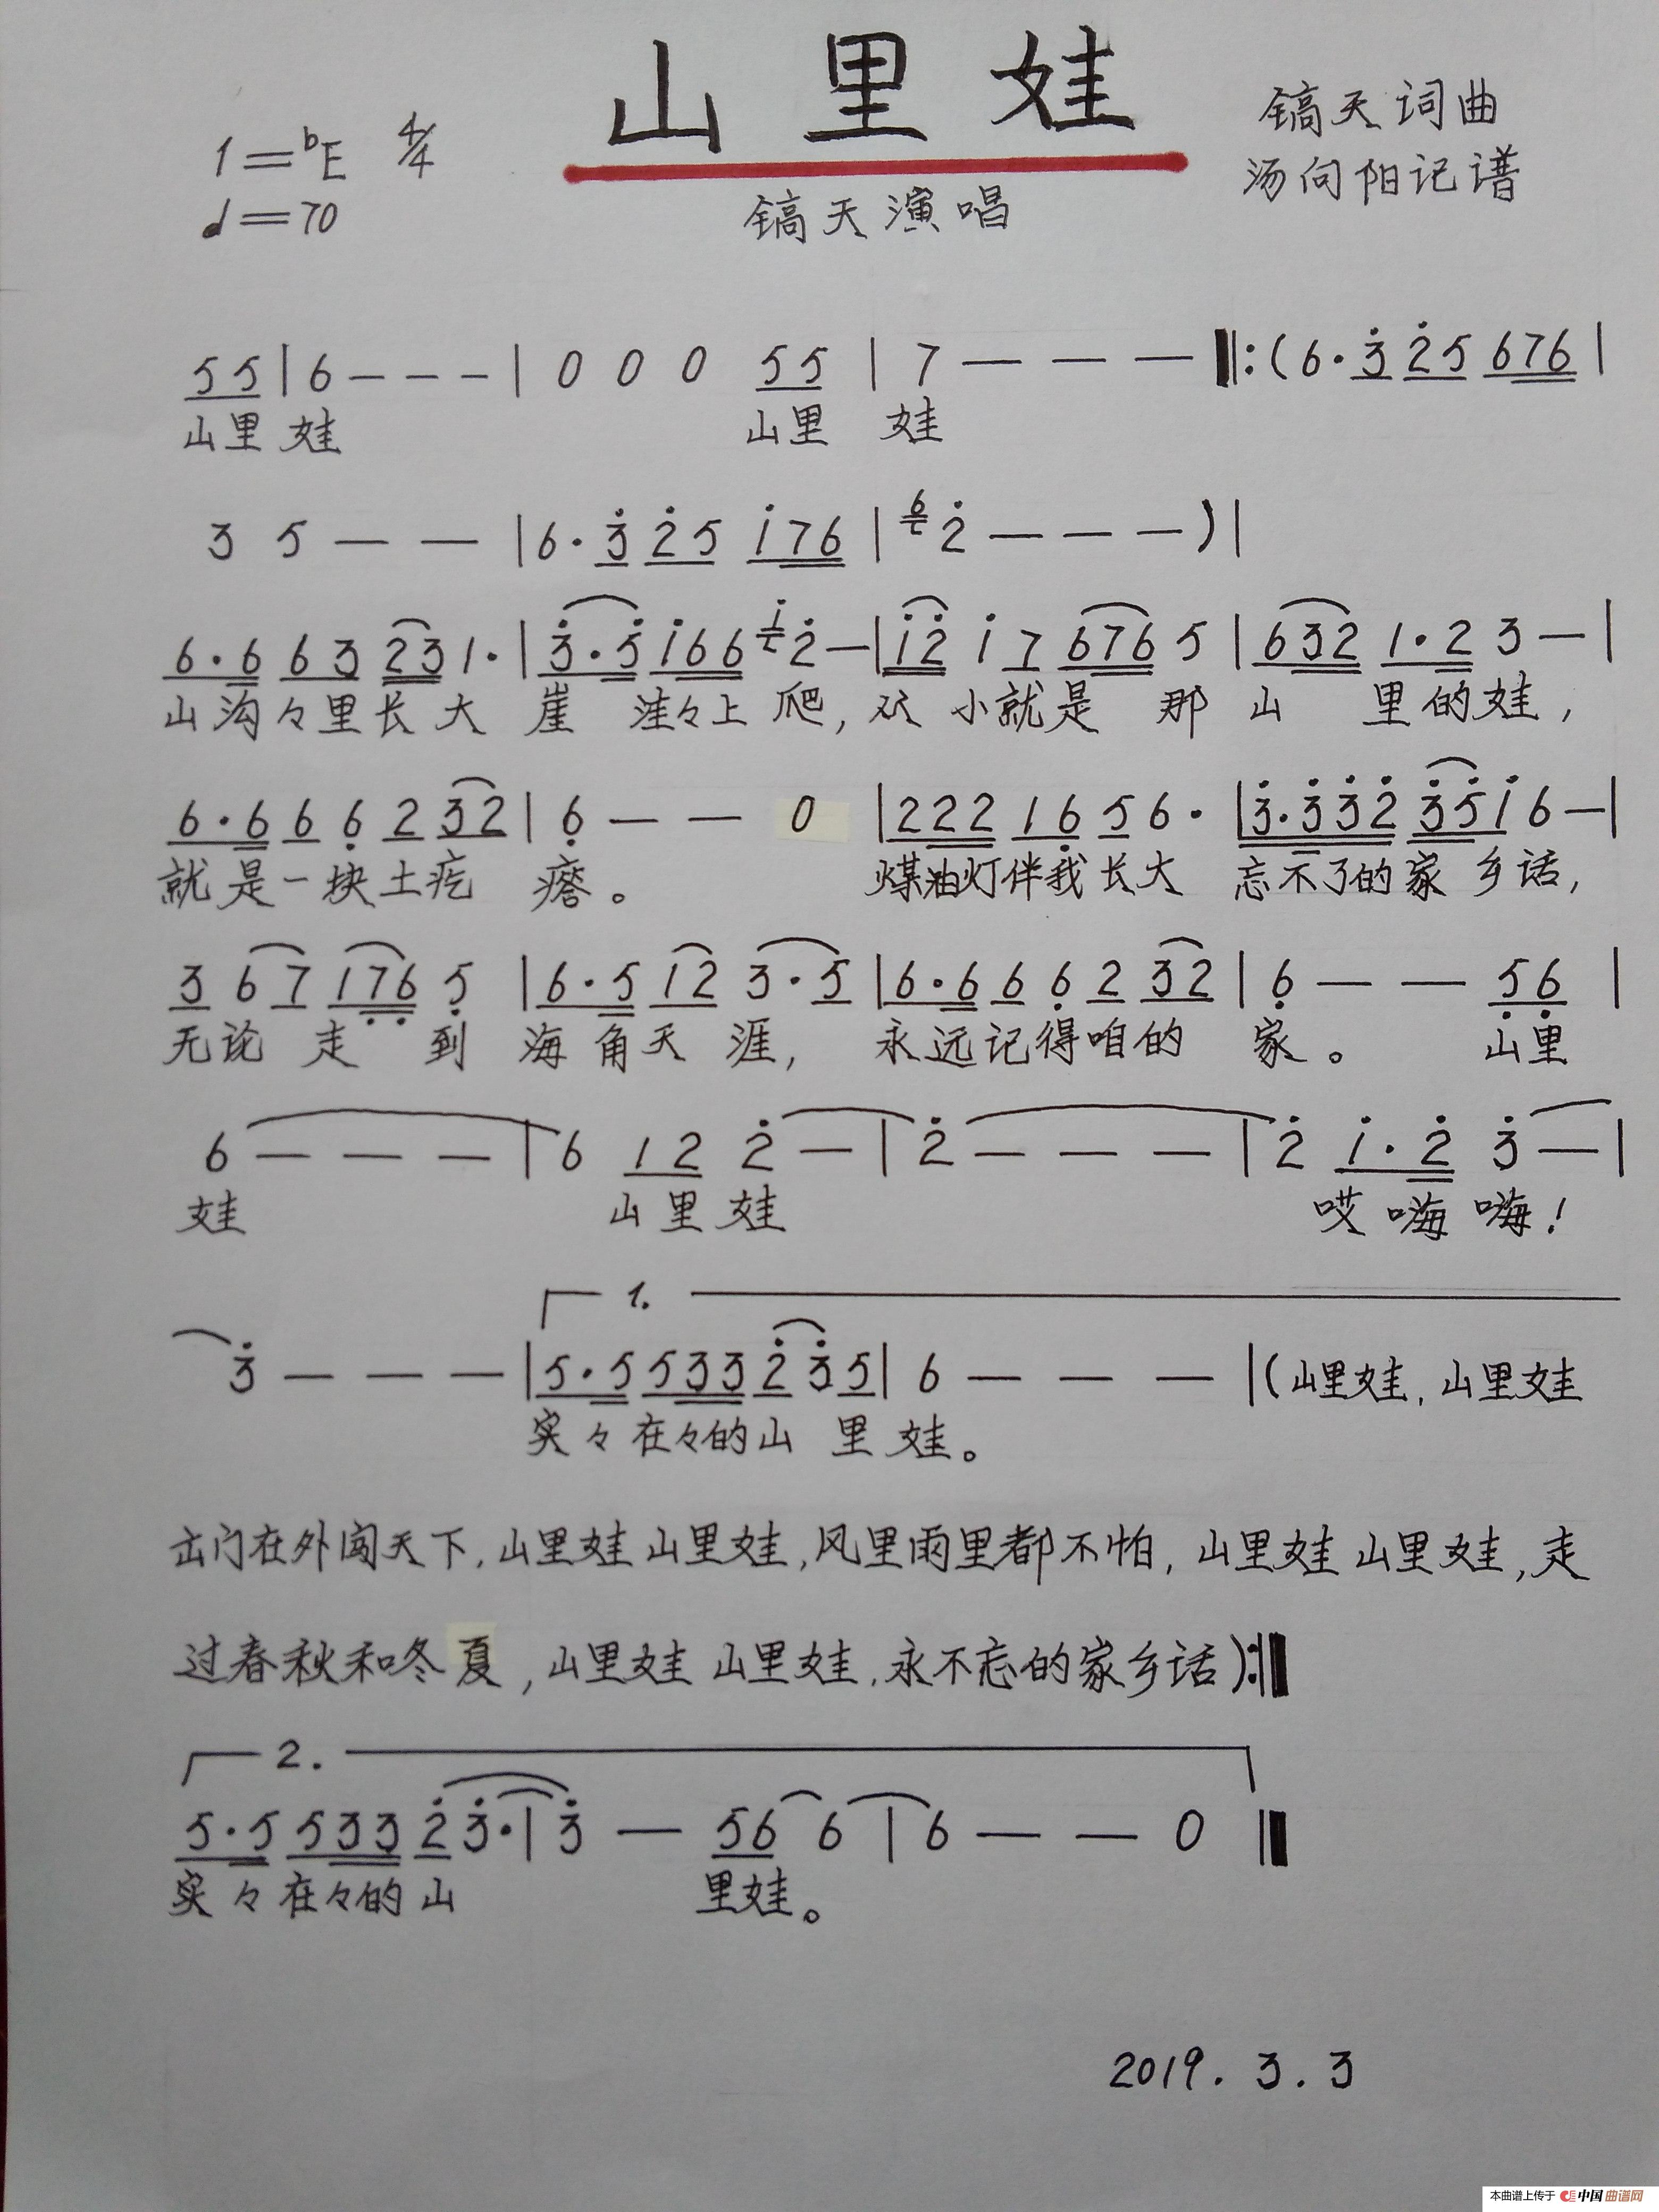 山里娃
1=♭E 4/4
镐天词曲
♩=70
汤向阳记谱
镐天演唱
55|6---|000 55|7---‖:(6·3̇ 2̇5 676|
山里娃 山里 娃
3 5--|6·3̇ 2̇5 1̇76|⁶2̇---)|
6·6 63 23 1·|3̇·5̇ 1̇66 ¹̇2̇-|1̇2̇ 1̇7 676 5|632 1·2 3-|
山沟々里长大 崖 洼々上爬,从小就是 那 山 里的娃,
6·6 6 6̣ 2 32|6̣--0|222 16̣ 5 6·|3̇·3̇3̇2̇ 3̇5̇1̇ 6-|
就是一块土疙 瘩。 煤油灯伴我长大 忘不了的家乡话,
3 67 17̣6̣ 5̣|6·5 12 3·5|6·6 6 6̣ 2 32|6̣-- 5̣6̣|
无论 走 到 海角天涯, 永远记得咱的 家。 山里
6---|6 12 2̇-|2̇---|2̇ 1̇·2̇ 3̇-|
娃 山里娃 哎嗨嗨!
1.
3̇---|5·5 533 2̇ 3̇5|6---|(山里娃,山里娃
实々在々的山 里 娃。
出门在外闯天下,山里娃山里娃,风里雨里都不怕,山里娃山里娃,走
过春秋和冬夏,山里娃山里娃,永不忘的家乡话):‖
2.
5·5 533 2̇3̇·|3̇- 56 6|6--0‖
实々在々的山 里娃。
2019.3.3
本曲谱上传于 中国曲谱网